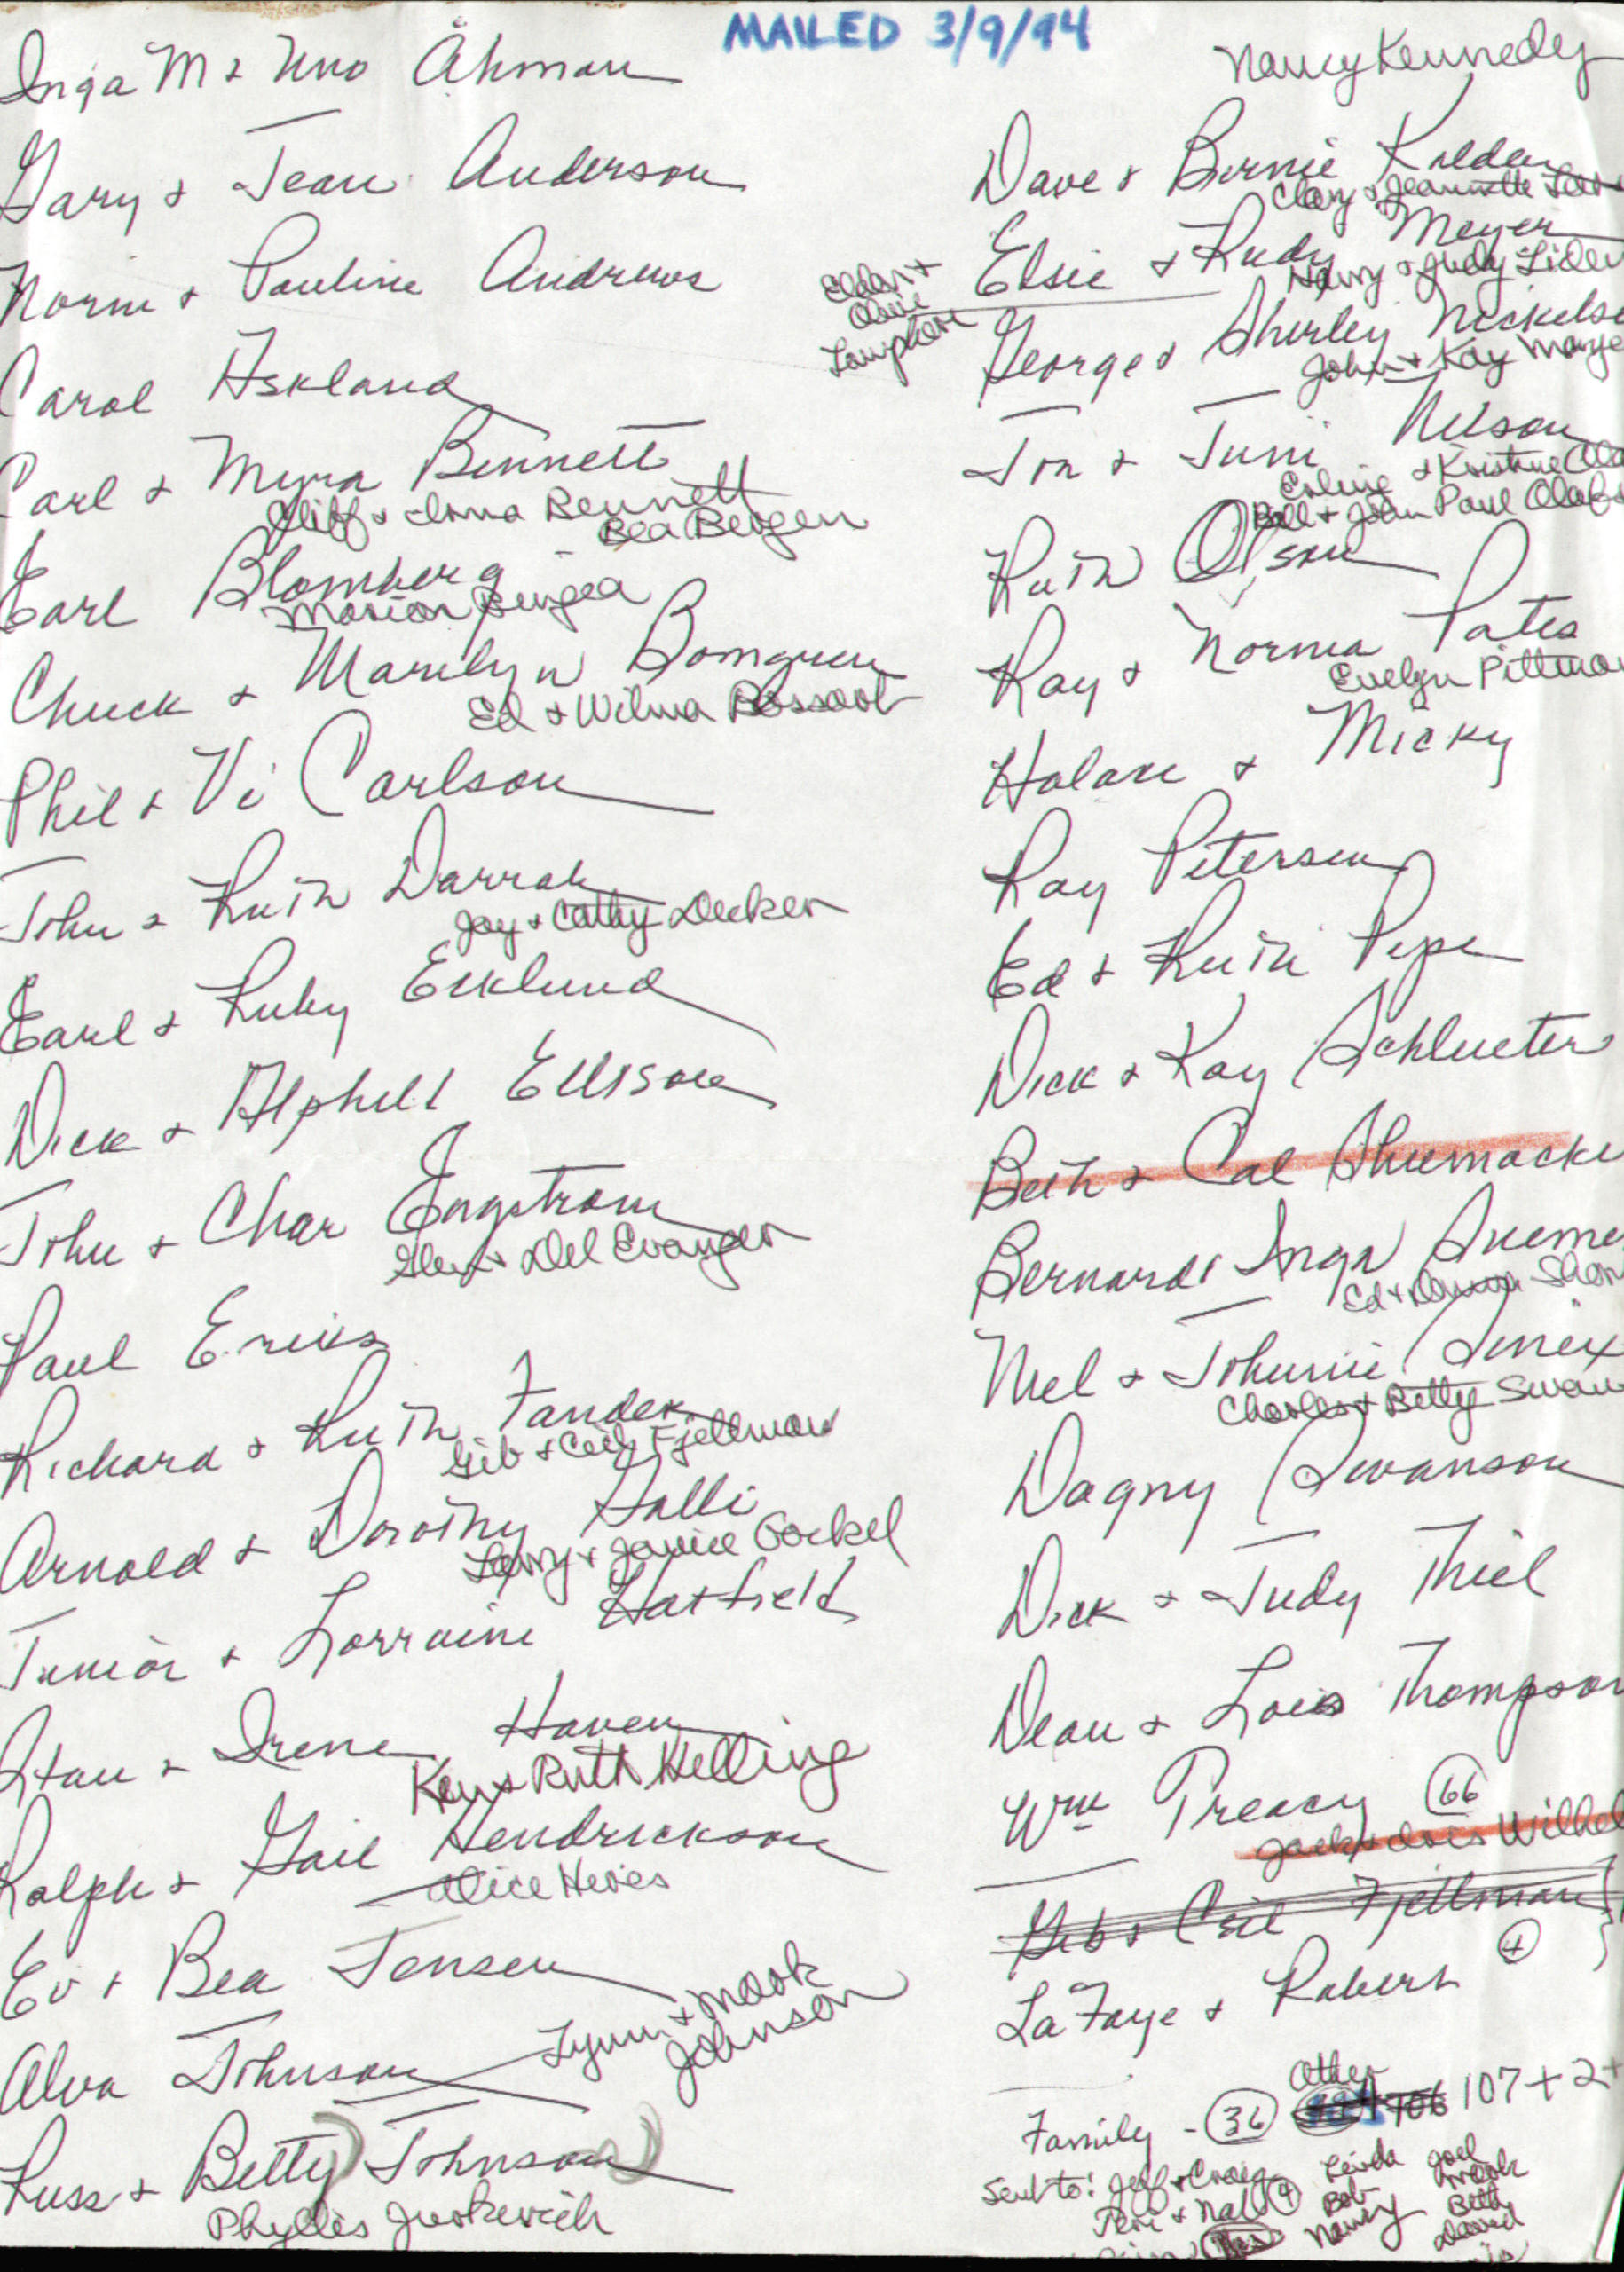 MAILED 3/9/94
Inga M & Uno Åhman
Gary & Jean Anderson
Norm & Pauline Andrews
Carol Askland
Carl & Myra Bennett
Cliff & Irma Bennett
Bea Bergen
Earl Blomberg
Marion
Chuck & Marilyn Bomgren
Ed & Wilma
Phil & Vi Carlson
John & Ruth Darrah
Jay & Cathy Decker
Earl & Ruby Ecklund
Dick & Alphild Ellison
John & Char Engstrom
Glen & Del Evanger
Paul Ericks
Richard & Ruth Fander
Gib & Ceil Fjellman
Arnold & Dorothy Halli
Larry & Janice Gockel
Junior & Lorraine Hatfield
Stan & Irene Haven
Ken & Ruth Helling
Ralph & Gail Hendrickson
Alice Heves
Ev & Bea Jensen
Alva Johnson
Lynn & Mark
Johnson
Russ & Betty Johnson
Phyllis Jurkevich
Nancy Kennedy
Dave & Bernie Kalden
Clary & Jeannette
Elsie & Rudy Meyer
Harry & Judy
Elder &
George & Shirley Nickelse
John & Kay
Jon & Juni Nelson
& Kristine
Bill & John Paul Olafs
Ruth Olson
Ray & Norma Pates
Evelyn Pittma
Halare & Micky
Ray Petersen
Ed & Ruth Pepe
Dick & Kay Schlueter
Beth & Cal Shumacke
Bernard & Inga
Ed &
Mel & Johnnie Smex
Charles & Betty Swan
Dagny Swanson
Dick & Judy Thiel
Dean & Lois Thompson
Wm Treacy 66
Jack & Lois Wilhel
Gib & Ceil Fjellman
LaFaye & Robert 4
Other
Family - 36 106 107+2+
Sent to: Jeff & Craig Linda Joel
Teri & Nal 4 Bob Mark
Nancy Betty
David